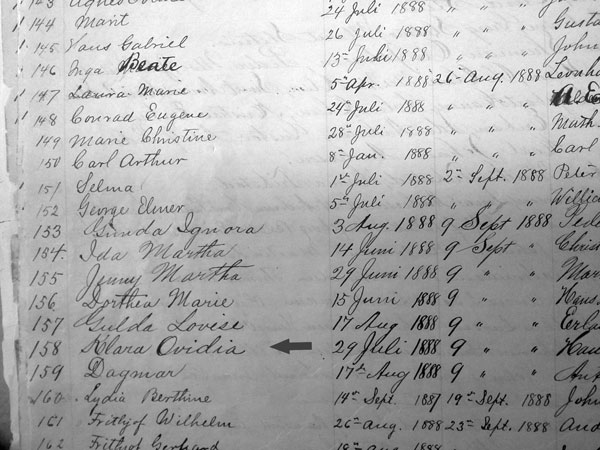 143 24 Juli 1888
144 Marit 26 Juli 1888 Gusta
145 Hans Gabriel 13 Juni 1888 John
146 Inga Beate 5te Apr. 1888 26te Aug. 1888
147 Laura Marie 24te Juli 1888 " " "
148 Conrad Eugene 28te Juli 1888 " " " Math
149 Marie Christine 8te Jan. 1888 " " " Carl
150 Carl Arthur 1te Juli 1888 2te Sept. 1888 Peter
151 Selma 5te Juli 1888 " " " Willia
152 George Elmer
153 Gunda Ignora 3 Aug. 1888 9 Sept 1888
154. Ida Martha 14 Juni 1888 9 Sept " Chris
155 Jenny Martha 29 Juni 1888 9 " " Mar
156 Dorthea Marie 15 Juni 1888 9 " " Hans
157 Gulda Lovise 17 Aug 1888 9 " " Erla
158 Klara Ovidia 29 Juli 1888 9 " "
159 Dagmar 17te Aug 1888 9 " "
160 Lydia Berthine 14te Sept. 1887 19te Sept. 1888 John
161 Frithjof Wilhelm 26te Aug. 1888 23te Sept. 1888 And
162 Frithjof Gerhard 18te Aug. 1888